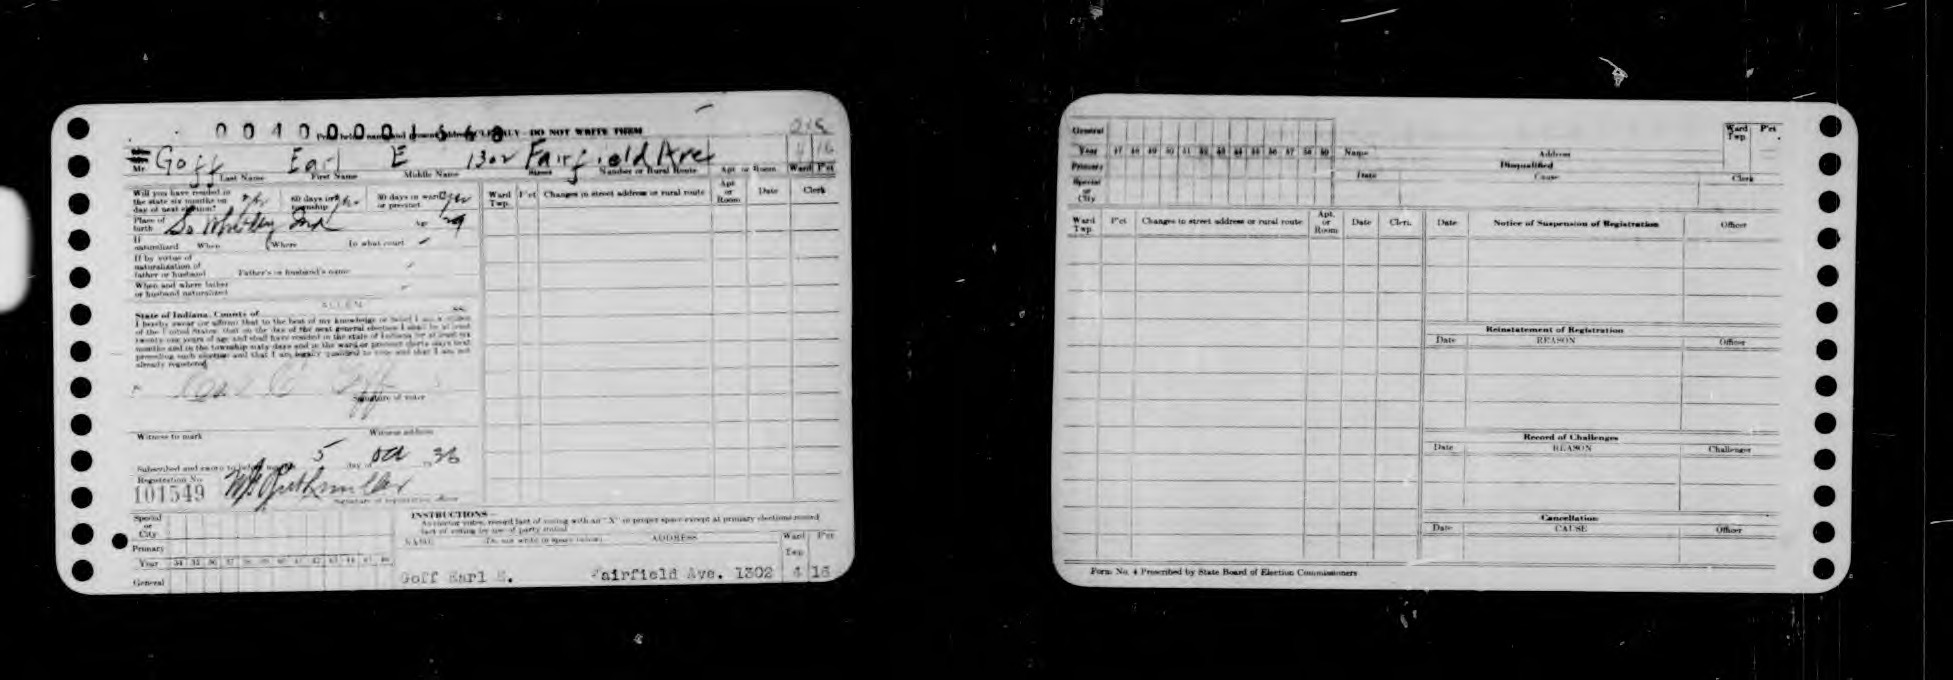 00400001568
Print below name and present address CLEARLY - DO NOT WRITE THEM
218
Mr. Goff Earl E 1302 Fairfield Ave 4 16
Last Name First Name Middle Name Street Number or Rural Route Apt or Room Ward P'ct
Will you have resided in the state six months on day of next election? yes 60 days in township yes 30 days in ward or precinct yes
Ward Twp. P'ct Changes in street address or rural route Apt or Room Date Clerk
Place of birth So Whitley Ind Age 29
If naturalized When Where In what court
If by virtue of naturalization of father or husband Father's or husband's name
When and where father or husband naturalized
ALLEN
State of Indiana, County of ss
I hereby swear (or affirm) that to the best of my knowledge or belief I am a citizen
of the United States; that on the day of the next general election I shall be at least
twenty-one years of age and shall have resided in the state of Indiana for at least six
months and in the township sixty days and in the ward or precinct thirty days next
preceding such election and that I am legally qualified to vote and that I am not
already registered
Earl E Goff
Signature of voter
Witness to mark Witness address
Subscribed and sworn to before me this 5 day of Oct 1936
Registration No.
101549
Signature of registration officer
INSTRUCTIONS—
As elector votes, record fact of voting with an "X" in proper space except at primary elections record
fact of voting by use of party initial
Special or City
Primary
Year 34 35 36 37 38 39 40 41 42 43 44 45 46
General
NAME (Do not write in space below) ADDRESS Ward Twp. P'ct
Goff Earl E. Fairfield Ave. 1302 4 16
General
Year 47 48 49 50 51 52 53 54 55 56 57 58 59
Primary
Special or City
Name Address Ward Twp. P'ct
Disqualified
Date Cause Clerk
Ward Twp. P'ct Changes in street address or rural route Apt. or Room Date Clerk
Date Notice of Suspension of Registration Officer
Reinstatement of Registration
Date REASON Officer
Record of Challenges
Date REASON Challenger
Cancellation
Date CAUSE Officer
Form No. 4 Prescribed by State Board of Election Commissioners